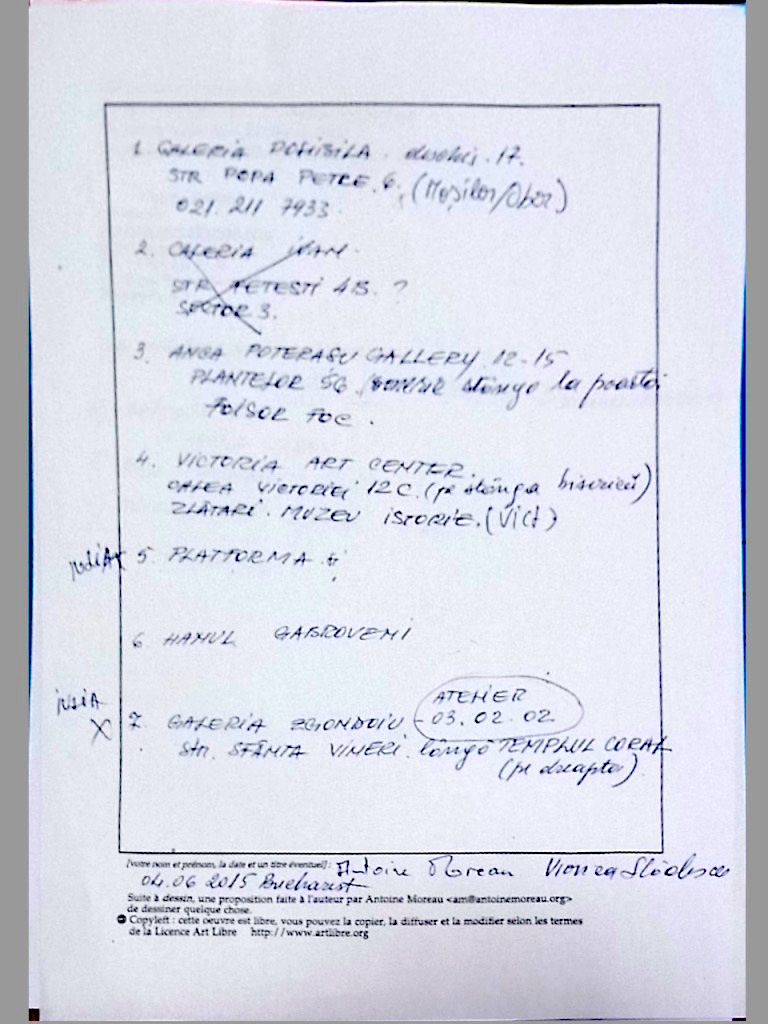 1. GALERIA POSIBILA . deschi . 17.
STR POPA PETRE . 6 , (Moșilor/Obor)
021. 211 7933.
2. GALERIA IVAM.
STR FETESTI 4B. ?
SECTOR 3.
3. ANCA POTERASU GALLERY. 12-15
PLANTELOR 56. stânga la poartă
FOISOR FOC.
4. VICTORIA ART CENTER.
CALEA VICTORIEI 12C. (pe stânga biserică)
ZLĂTARI. MUZEU ISTORIE. (Vict)
5. PLATFORMA
6. HANUL GABROVENI
ATELIER
7. GALERIA - 03. 02. 02
Str. SFÂNTA VINERI. lângă TEMPLUL CORAL
(pe dreapta).
[votre nom et prénom, la date et un titre éventuel] : Antoine Moreau
04.06 2015 Bucharest
Suite à dessin, une proposition faite à l'auteur par Antoine Moreau <am@antoinemoreau.org>
de dessiner quelque chose.
Copyleft : cette oeuvre est libre, vous pouvez la copier, la diffuser et la modifier selon les termes
de la Licence Art Libre http://www.artlibre.org